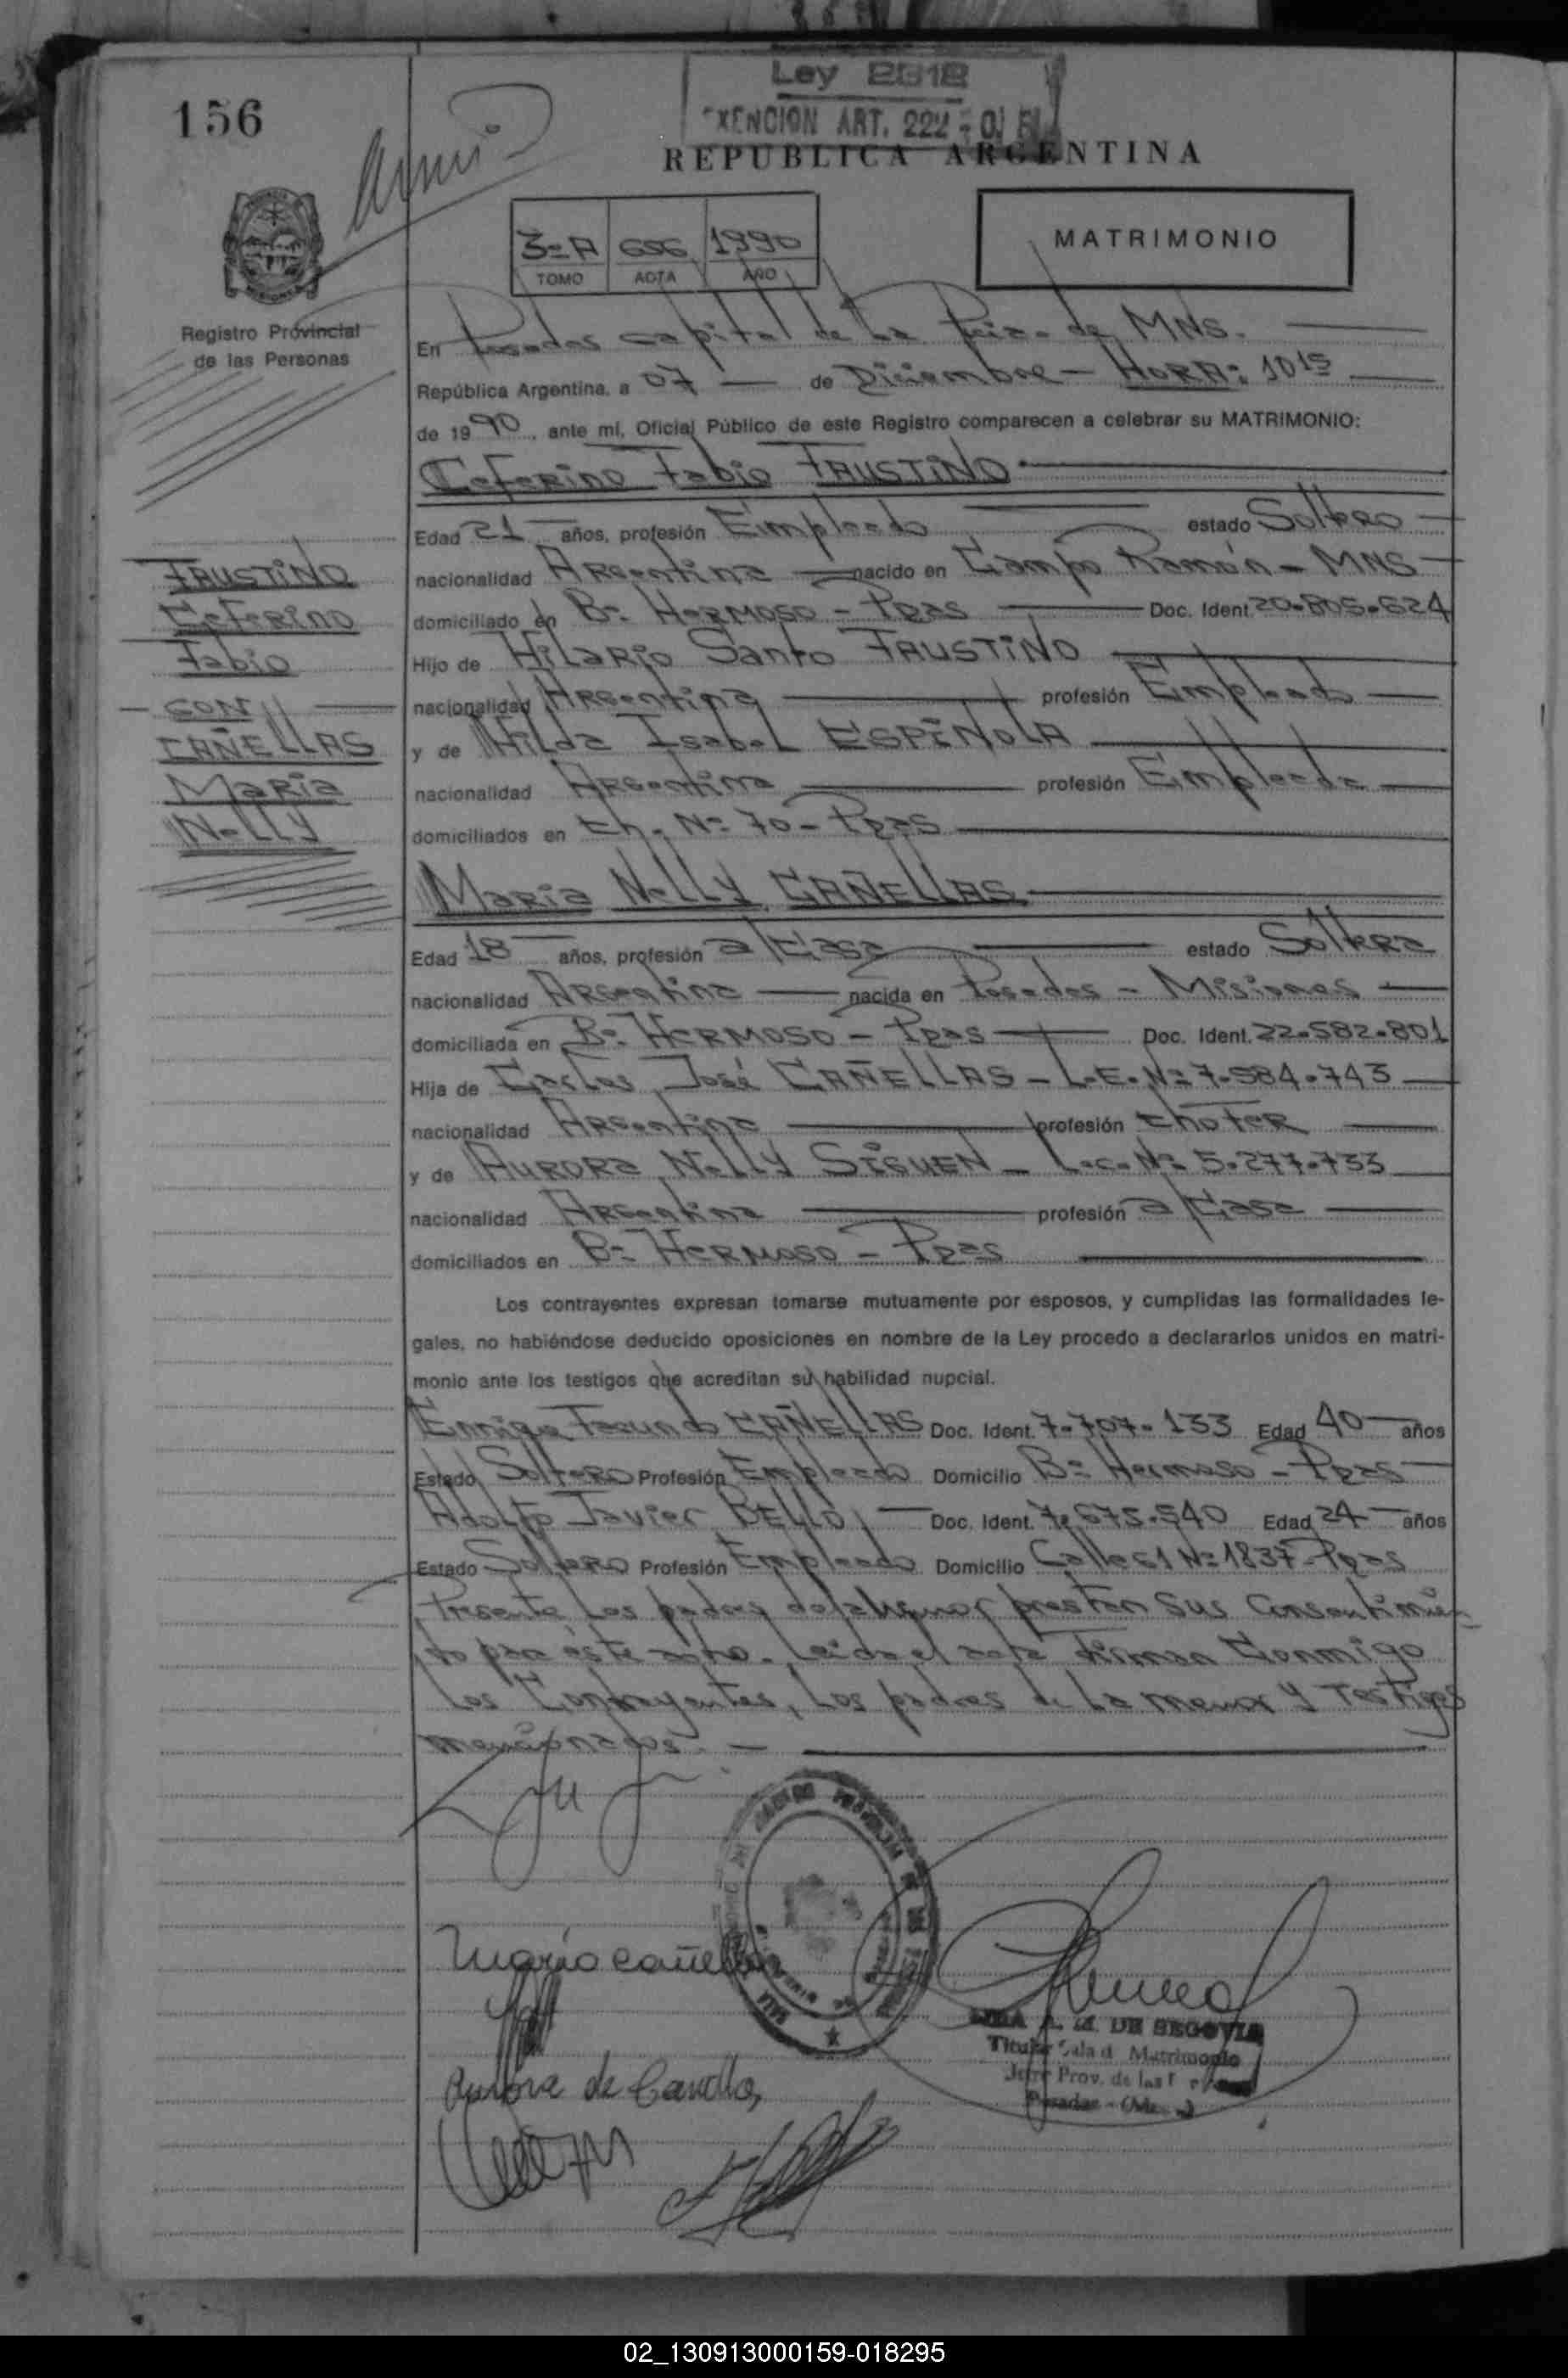 156
Ley 2812
EXENCION ART. 222
REPUBLICA ARGENTINA
3=A 696 1990
TOMO ACTA AÑO
MATRIMONIO
Registro Provincial
de las Personas
En Posadas capital de la Pcia. de MNS.
República Argentina, a 07 de Diciembre - HORA: 10 15
de 1990, ante mi, Oficial Público de este Registro comparecen a celebrar su MATRIMONIO:
Ceferino Fabio FAUSTINO
Edad 21 años, profesión Empleado estado Soltero
nacionalidad Argentina nacido en Campo Ramón - MNS
domiciliado en Bº HERMOSO - Pdas Doc. Ident. 20.805.624
Hijo de Hilario Santo FAUSTINO
nacionalidad Argentina profesión Empleado
y de Hilda Isabel ESPINOLA
nacionalidad Argentina profesión Empleada
domiciliados en Ch. Nº 70 - Pdas
FAUSTINO
Ceferino
Fabio
- CON
CAÑELLAS
María
Nelly
María Nelly CAÑELLAS
Edad 18 años, profesión a/casa estado Soltera
nacionalidad Argentina nacida en Posadas - Misiones
domiciliada en Bº HERMOSO - Pdas Doc. Ident. 22.582.801
Hija de Carlos José CAÑELLAS - L.E. Nº 7.584.743
nacionalidad Argentina profesión chofer
y de AURORA Nelly SIGUEN - L.C. Nº 5.277.733
nacionalidad Argentina profesión a/casa
domiciliados en Bº HERMOSO - Pdas
Los contrayentes expresan tomarse mutuamente por esposos, y cumplidas las formalidades le-
gales, no habiéndose deducido oposiciones en nombre de la Ley procedo a declararlos unidos en matri-
monio ante los testigos que acreditan su habilidad nupcial.
Facundo CAÑELLAS Doc. Ident. 7.707.133 Edad 40 años
Estado Soltero Profesión Empleado Domicilio Bº Hermoso - Pdas
Adolfo Javier BELLO Doc. Ident. 7.675.540 Edad 24 años
Estado Soltero Profesión Empleado Domicilio Calle 61 Nº 1837 - Pdas
Presente los padres de la menor prestan sus consentimien
to para éste acto. Leida el acta Firman Conmigo
los Contrayentes, los padres de la menor y Testigos
mencionados. -
María Cañellas
Aurora de Canellas
A. M. DE SEGOVIA
Titular Sala d Matrimonio
Prov. de las
Posadas - (Mnes.)
02_130913000159-018295